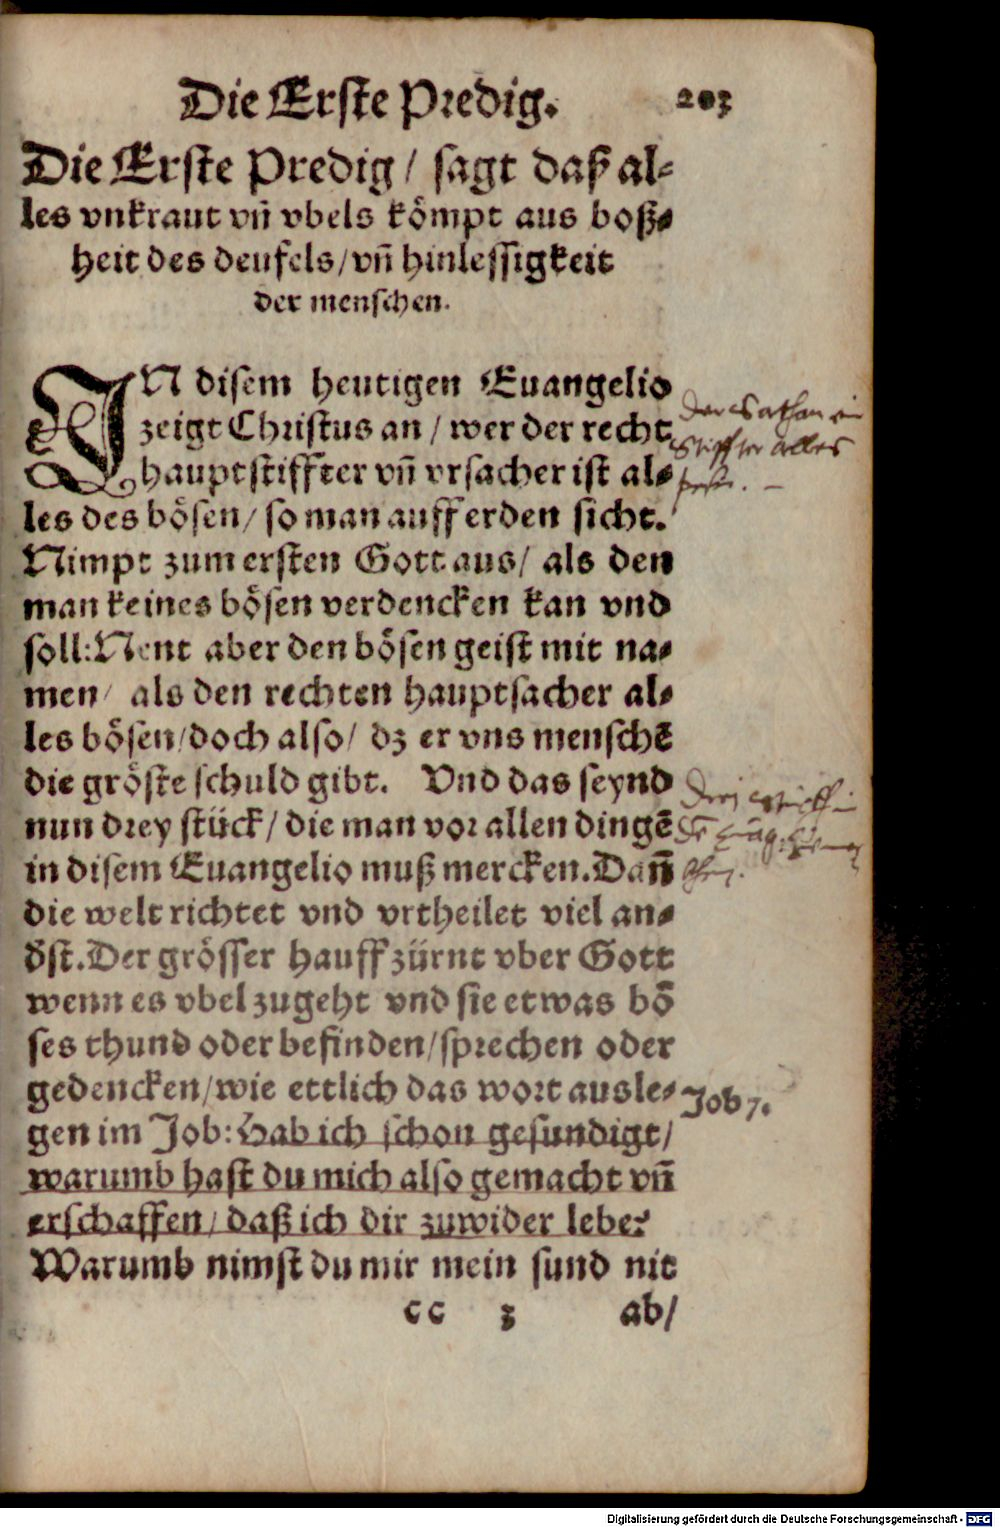 Die Erste Predig. 203
Die Erste Predig / sagt daß al⸗
les vnkraut vñ vbels kömpt aus boß⸗
heit des deufels / vñ hinlessigkeit
der menschen.
IN disem heutigen Euangelio
zeigt Christus an / wer der recht
hauptstiffter vñ vrsacher ist al⸗
les des bösen / so man auff erden sicht.
Nimpt zum ersten Gott aus / als den
man keines bösen verdencken kan vnd
soll: Nent aber den bösen geist mit na⸗
men / als den rechten hauptsacher al⸗
les bösen / doch also / dz er vns menschē
die gröste schuld gibt. Vnd das seynd
nun drey stück / die man vor allen dingē
in disem Euangelio muß mercken. Dañ
die welt richtet vnd vrtheilet viel an⸗
dst. Der grösser hauff zürnt vber Gott
wenn es vbel zugeht vnd sie etwas bö
ses thund oder befinden / sprechen oder
gedencken / wie ettlich das wort ausle⸗
gen im Job: Hab ich schon gesundigt /
warumb hast du mich also gemacht vñ
erschaffen / daß ich dir zuwider lebe?
Warumb nimst du mir mein sund nit
cc 3 ab /
der Sathan ein
Stiffter alles
Job 7.
Digitalisierung gefördert durch die Deutsche Forschungsgemeinschaft - DFG